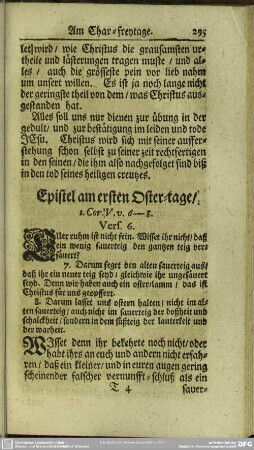 Am Char-freytage. 295
let wird / wie Christus die grausamsten ur-
theile und lästerungen tragen muste / und al-
les / auch die grösseste pein vor lieb nahm
um unsert willen. Es ist ja noch lange nicht
der geringste theil von dem / was Christus aus-
gestanden hat.
Alles soll uns nur dienen zur übung in der
gedult / und zur bestätigung im leiden und tode
JEsu. Christus wird sich mit seiner auffer-
stehung schon selbst zu seiner zeit rechtfertigen
in den seinen / die ihm also nachgefolget sind biß
in den tod seines heiligen creutzes.
Epistel am ersten Oster-tage /
1. Cor. V. v. 6—8.
Vers. 6.
Euer ruhm ist nicht fein. Wisset ihr nicht / daß
ein wenig sauerteig den gantzen teig ver-
säuert?
7. Darum feget den alten sauerteig aus /
daß ihr ein neuer teig seyd / gleichwie ihr ungesäuert
seyd. Denn wir haben auch ein oster-lamm / das ist
Christus für uns geopffert.
8. Darum lasset uns ostern halten / nicht im al-
ten sauerteig / auch nicht im sauerteig der boßheit und
schalckheit / sondern in dem süßteig der lauterkeit und
der warheit.
Wisset denn ihr bekehrte noch nicht / oder
habt ihrs an euch und andern nicht erfah-
ren / daß ein kleiner / und in euren augen gering
scheinender falscher vernunfft-schluß als ein
T 4 sauer-